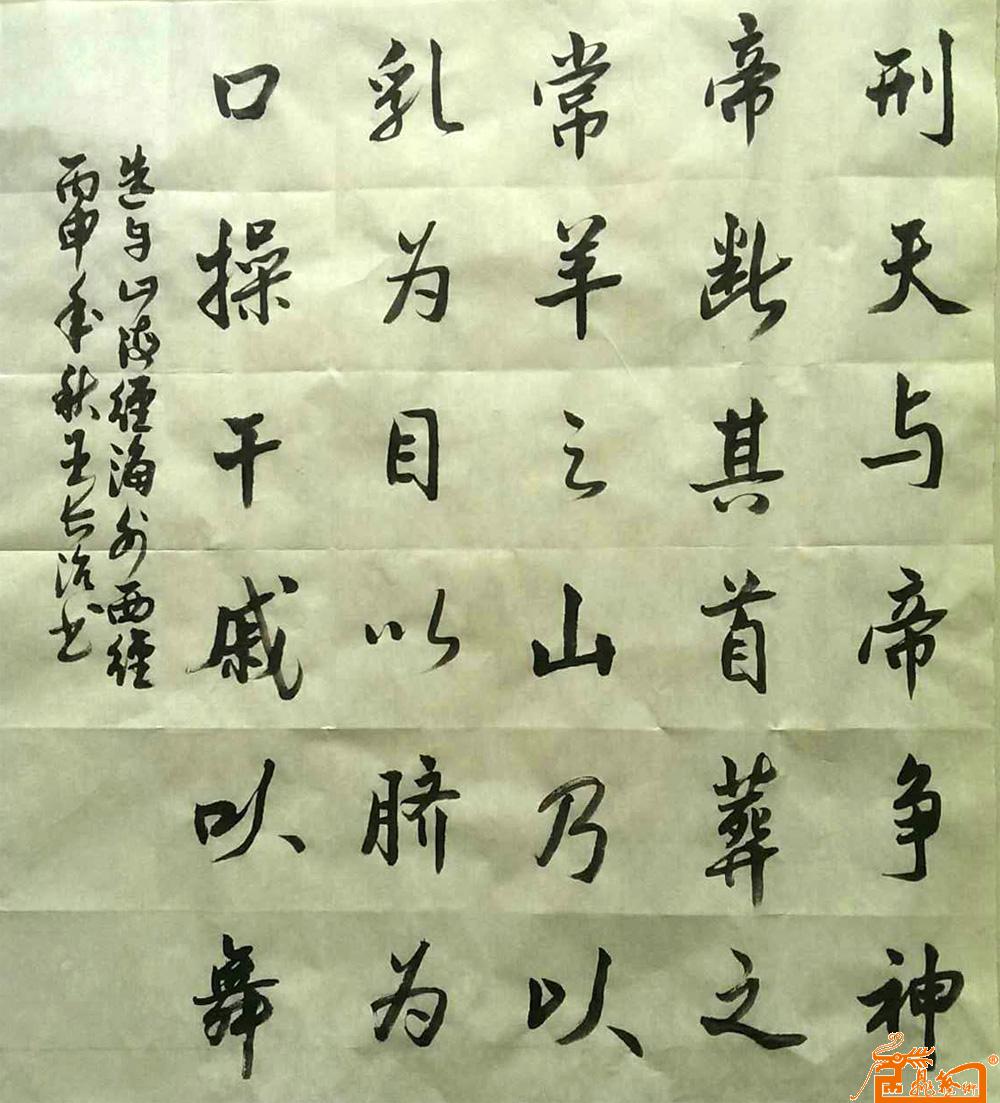 刑天与帝争神
帝断其首葬之
常羊之山乃以
乳为目以脐为
口操干戚以舞
选与山海经海外西经
丙申年秋王长治书